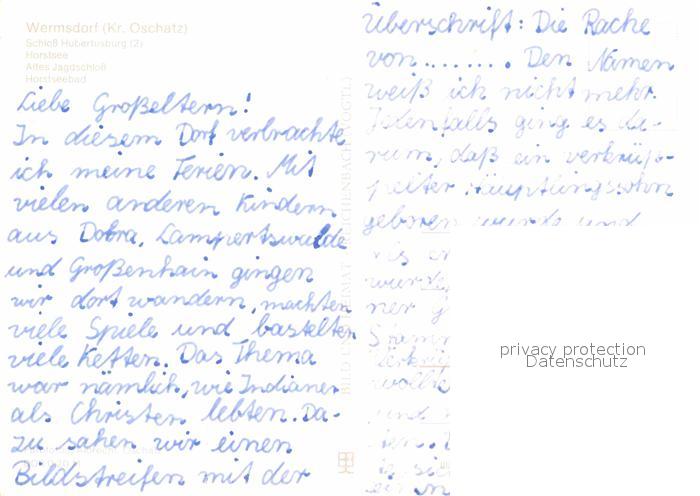 Wermsdorf (Kr. Oschatz)
Schloß Hubertusburg (2)
Horstsee
Altes Jagdschloß
Horstseebad
Liebe Großeltern!
In diesem Dorf verbrachte
ich meine Ferien. Mit
vielen anderen Kindern
aus Dobra, Lampertswalde
und Großenhain gingen
wir dort wandern, machten
viele Spiele und bastelten
viele Ketten. Das Thema
war nämlich, wie Indianer
als Christen lebten. Da-
zu sahen wir einen
Bildstreifen mit der
Überschrift: Die Rache
von........ Den Namen
weiß ich nicht mehr.
Jedenfalls ging es da-
rum, daß ein verkrüp-
pelter Häuptlingssohn
geboren wurde und
als er
wurde
ner
Stamm
wollte
und
privacy protection
Datenschutz